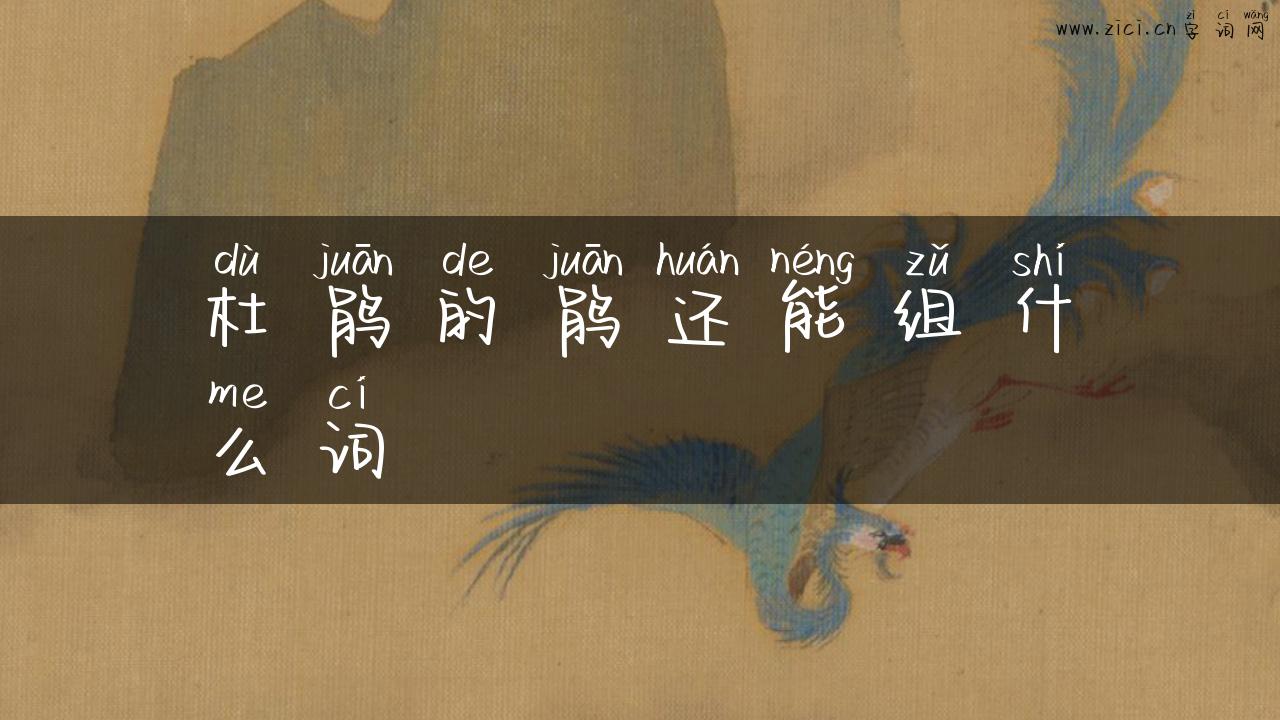 zì cí wǎng
www.zici.cn 字 词 网
dù juān de juān huán néng zǔ shí
杜 鹃 的 鹃 还 能 组 什
me cí
么 词